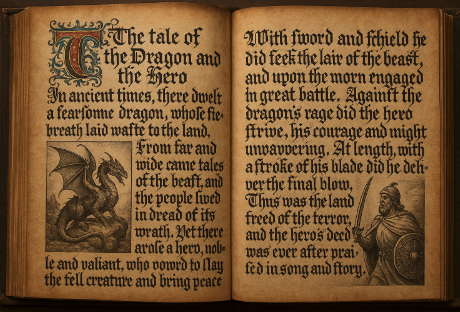 T The tale of
the Dragon and
the Hero
In ancient times, there dwelt
a fearſome dragon, whoſe fie-
breath laid waſte to the land.
From far and
wide came tales
of the beaſt, and
the people lived
in dread of its
wrath. Yet there
aroſe a hero, nob-
le and valiant, who vow'd to ſlay
the fell creature and bring peace
With ſword and ſchield he
did ſeek the lair of the beaſt,
and upon the morn engaged
in great battle. Againſt the
dragon's rage did the hero
ſtrive, his courage and might
unwavoring. At length, with
a ſtroke of his blade did he deli-
ver the final blow.
Thus was the land
freed of the terror,
and the hero's deed
was ever after prai-
ſed in song and ſtory.